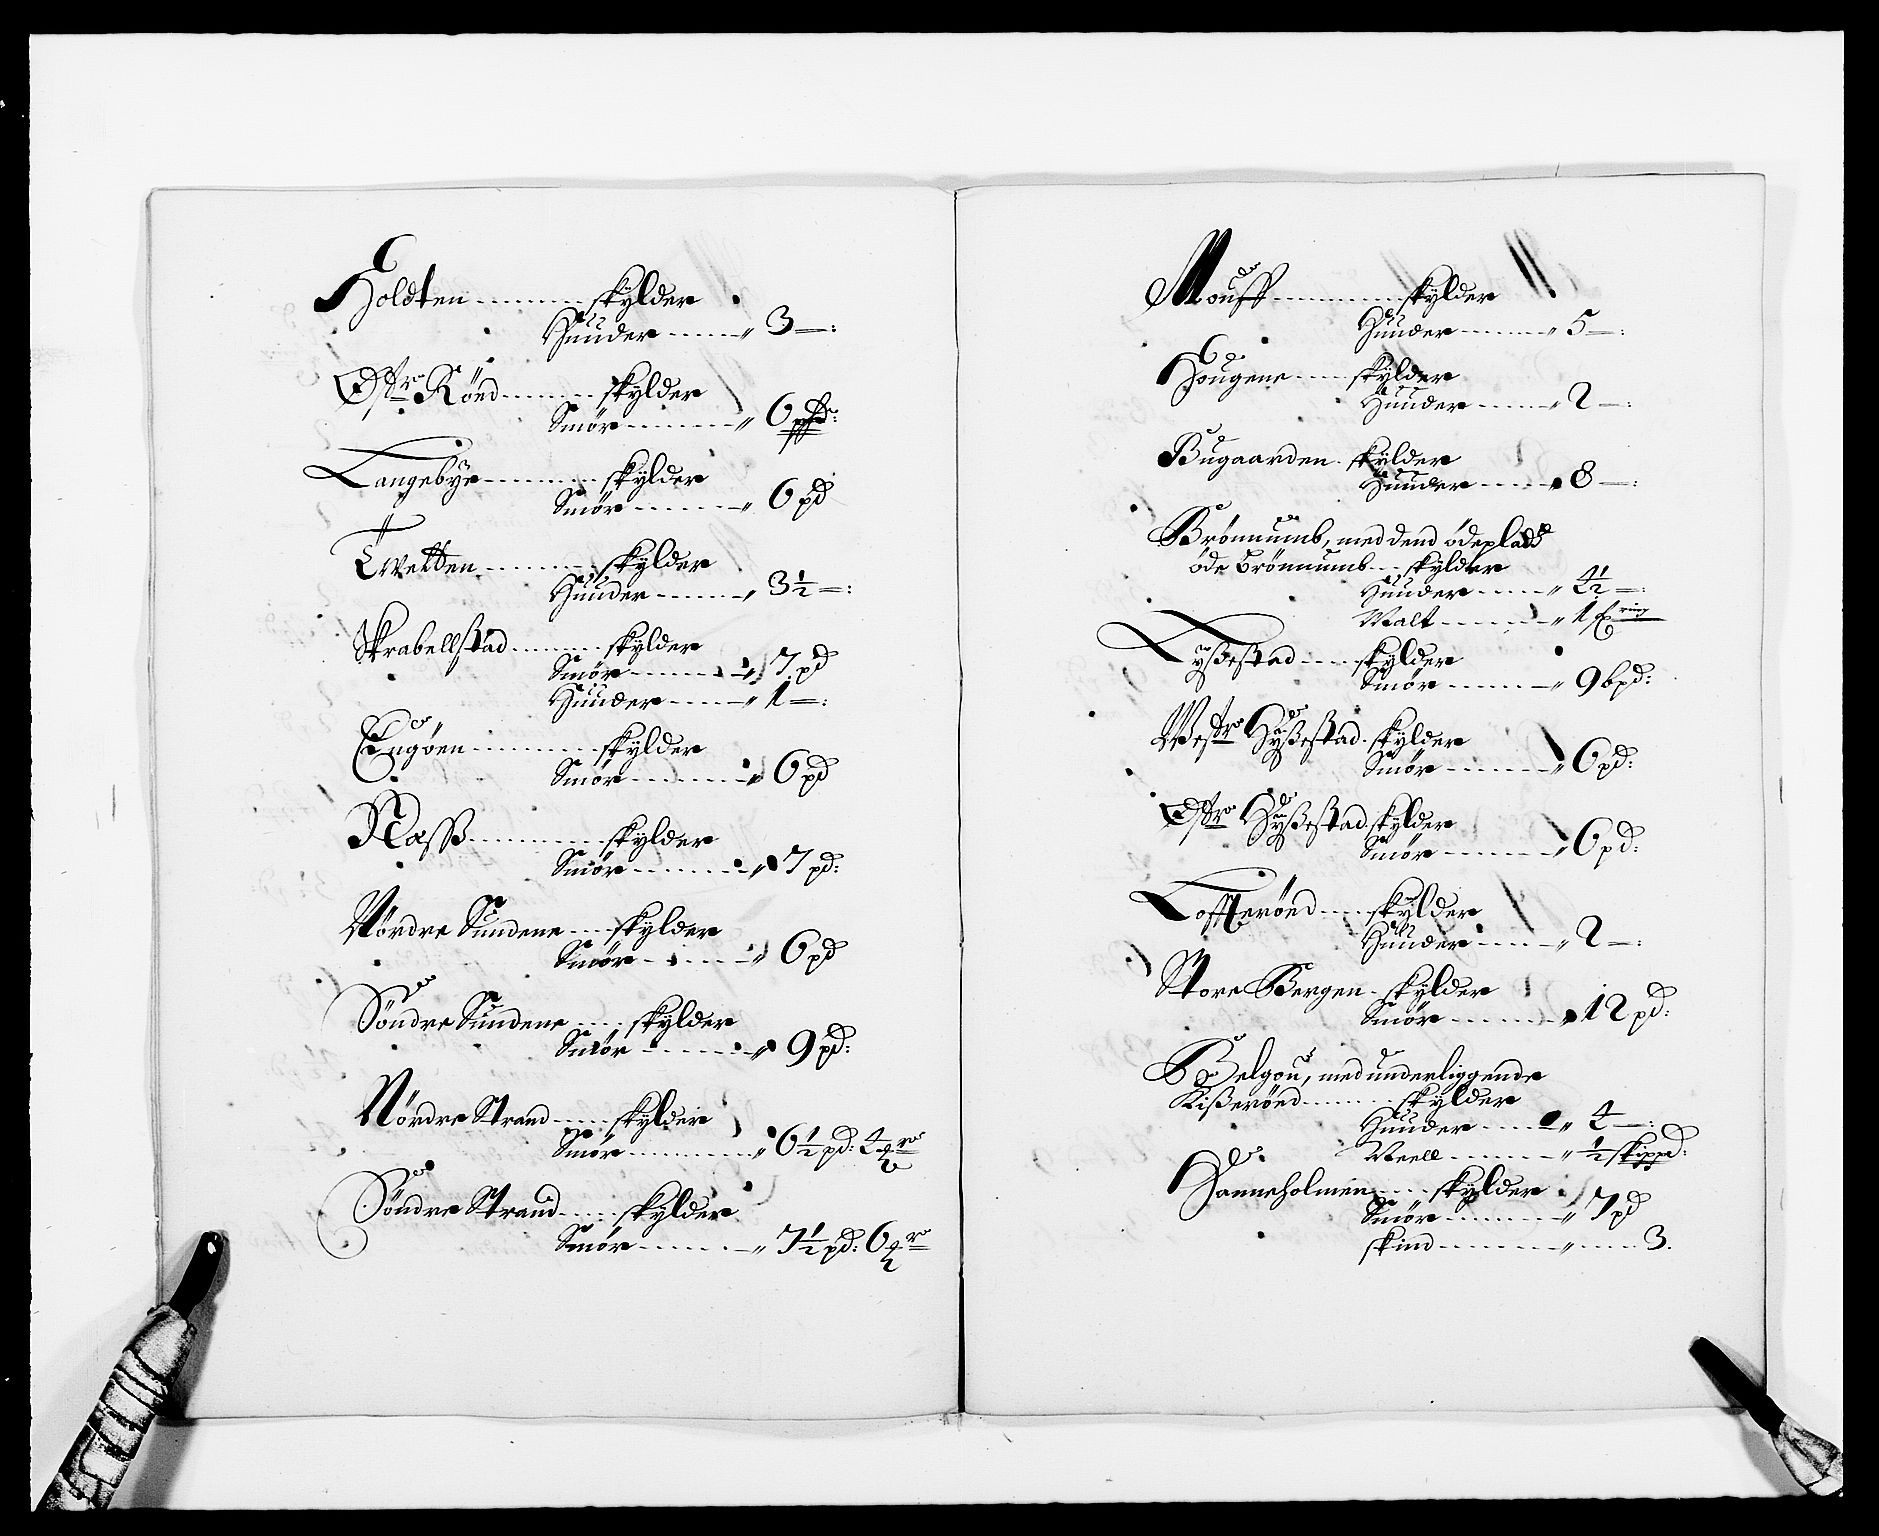 Holdten ......... skylder
Huuder ...... „ 3 —:
Østre Rönd ........ skylder
Smör ........ „ 6 pd:
Langebÿe ......... skylder
Smör ........ „ 6 pd
Tvetten ......... skylder
Huuder ...... „ 3½ —:
Skrabellstad ....... skylder
Smör ....... „ 7 pd
Huuder ...... „ 1 —:
Engöen .......... skylder
Smör ........ „ 6 pd
Næss .......... skylder
Smör ........ „ 7 pd:
Nördre Sundene .... skylder
Smör ....... „ 6 pd
Söndre Sundene .... skylder
Smör ....... „ 9 pd:
Nördre Strand ..... skylder
Smör ........ „ 6½ pd: 4
Söndre Strand ..... skylder
Smör ........ „ 7½ pd: 6
Mouff .......... skylder
Huuder ...... „ 5 —:
Hougene .... skylder
Huuder ...... „ 2 —:
Bugaarden . skylder
Huuder ...... „ 8 —:
Brönnumb, med dend ödeplads
öde Brönnumb ... skylder
Huuder ...... „ 4½ —:
Malt ........ „ 1
Lÿßestad .... skylder
Smör ....... „ 9 bpd:
Westre Hÿßestad . skylder
Smör ....... „ 6 pd:
Østre Hÿßestad . skylder
Smör ....... „ 6 pd:
Lofferönd .... skylder
Huuder ..... „ 2 —:
Store Bergen . skylder
Smör ....... „ 12 pd:
Belgou, med underliggende
Kißerönd ...... skylder
Huuder ..... „ 4 —:
Meell ........ „ ½ skippd:
Hanneholmen .... skylder
Smör ....... „ 7 pd
skind ........ „ ..... 3.